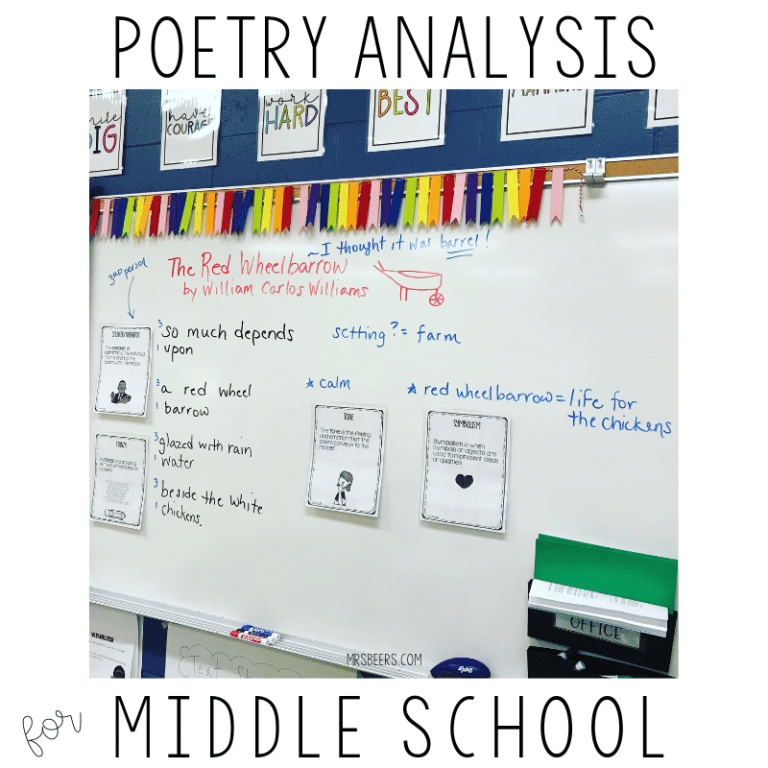 POETRY ANALYSIS
BIG
have
COURAGE
work
HARD
BEST
~I thought it was barrel!
3RD person
The Red Wheelbarrow
by William Carlos Williams
3 so much depends
1 upon
setting? = farm
3 a red wheel
1 barrow
* calm
* red wheelbarrow = life for
the chickens
3 glazed with rain
1 water
3 beside the white
1 chickens.
TONE
The tone is the
poem conveys to the
reader
SYMBOLISM
Symbolism is when
symbols or objects are
used to represent ideas
or qualities.
OFFICE
Text
MRSBEERS.COM
EXPO
for MIDDLE SCHOOL